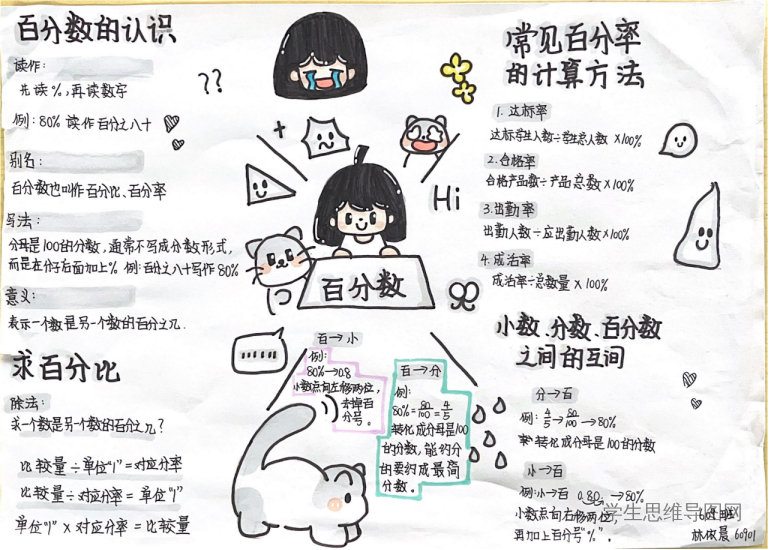 百分数的认识
读作:
先读%,再读数字
例:80% 读作 百分之八十
别名:
百分数也叫作百分比、百分率
写法:
分母是100的分数,通常不写成分数形式,
而是在分子后面加上% 例:百分之八十写作80%
意义:
表示一个数是另一个数的百分之几.
求百分比
除法:
求一个数是另一个数的百分之几?
比较量÷单位"1"=对应分率
比较量÷对应分率=单位"1"
单位"1"×对应分率=比较量
??
Hi
百分数
百→小
例:
80%→0.8
小数点向左移两位,
去掉百
分号。
百→分
例:
80%=80/100=4/5
转化成分母是100
的分数,能约分
的要约成最简
分数。
常见百分率
的计算方法
1. 达标率
达标学生人数÷学生总人数×100%
2.合格率
合格产品数÷产品总数×100%
3.出勤率
出勤人数÷应出勤人数×100%
4.成活率
成活率÷总数量×100%
小数、分数、百分数
之间的互间
分→百
例:4/5→80/100→80%
转化成分母是100的分数
小→百
例:小→百 0.80→80%
小数点向右移两位,
再加上百分号"%"。
学生思维导图网
林依晨 60901